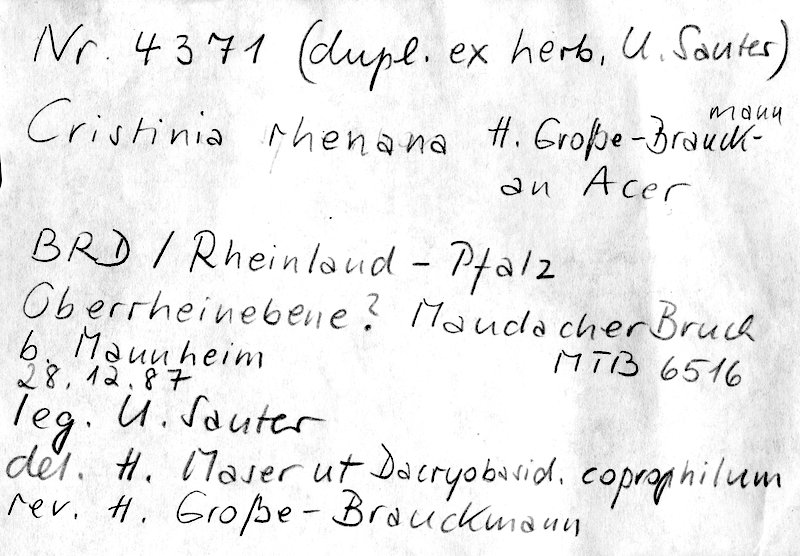 Nr. 4371 (dupl. ex herb. U. Sauter)
Cristinia rhenana H. Große-Brauck-
mann
an Acer
BRD / Rheinland-Pfalz
Oberrheinebene? Maudacher Bruch
b. Mannheim MTB 6516
28.12.87
leg. U. Sauter
det. H. Maser ut Dacryobasid. coprophilum
rev. H. Große-Brauckmann